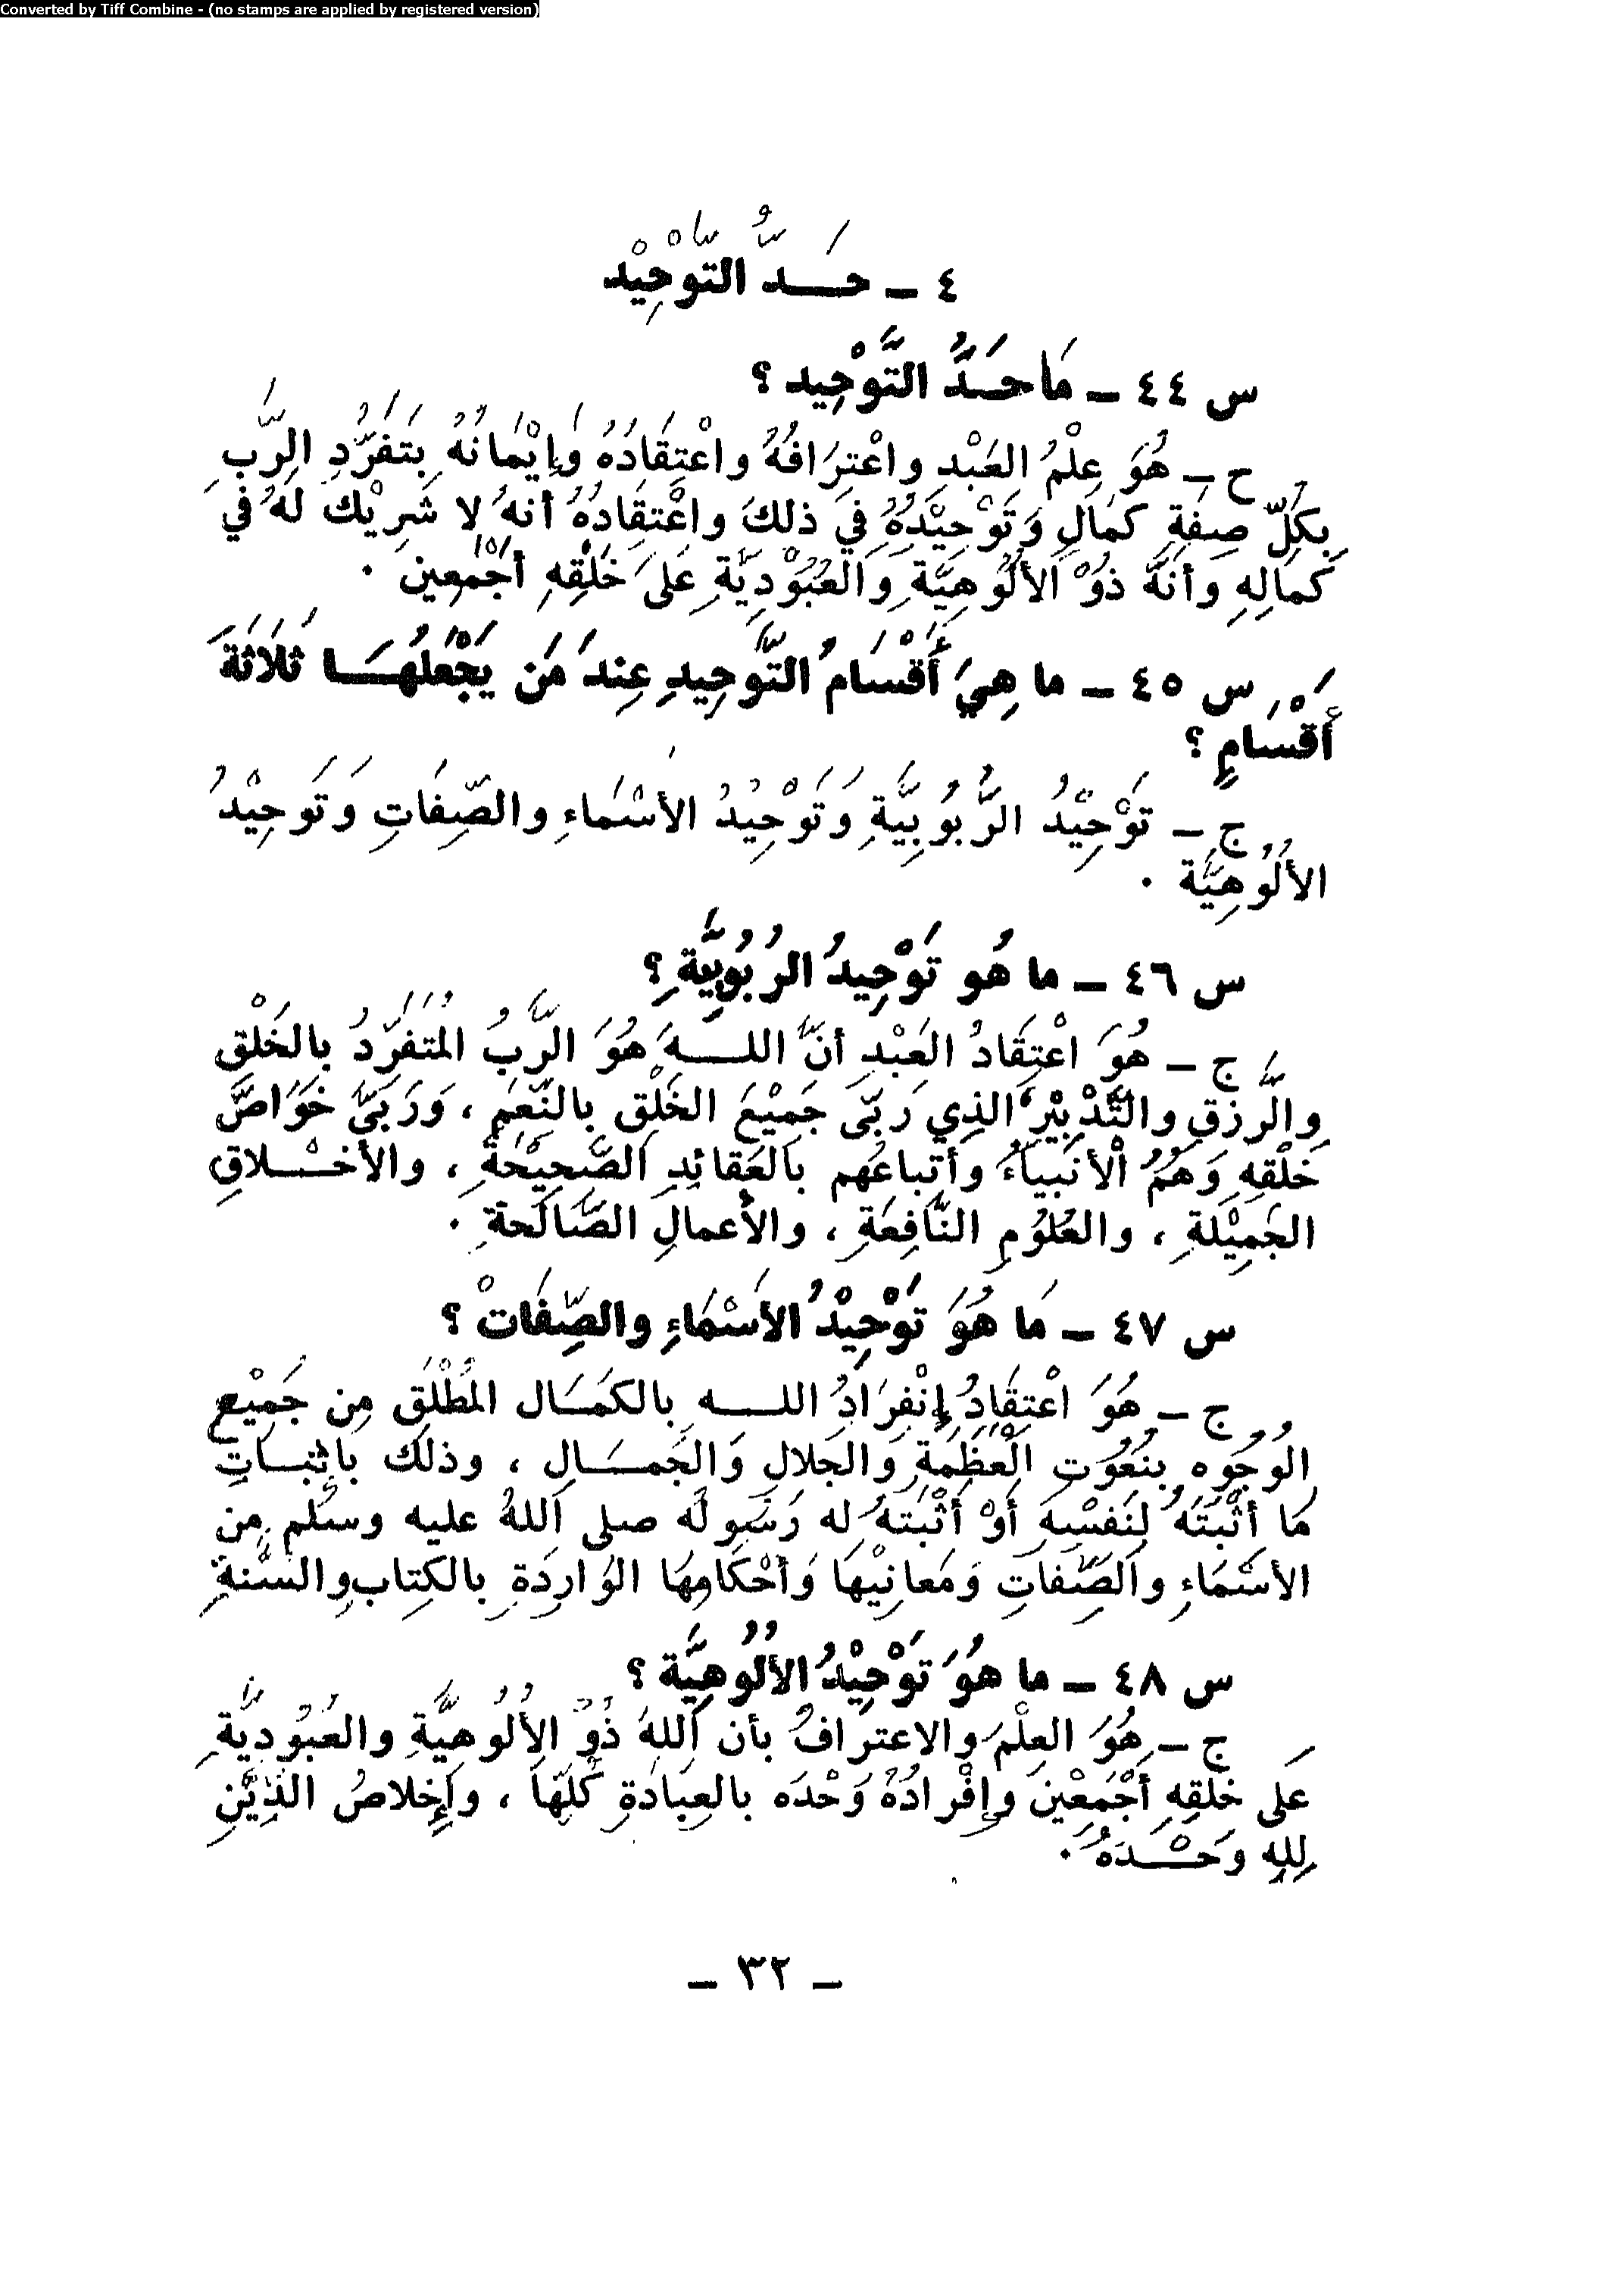 Converted by Tiff Combine - (no stamps are applied by registered version)
٤ ـ حَـدُّ التَّوْحِيْد
س ٤٤ ـ مَا حَـدُّ التَّوْحِيد ؟
ح ـ هُوَ عِلْمُ العَبْدِ واعْتِرَافُهُ واعْتِقَادُهُ وَإِيْمَانُهُ بِتَفَرُّدِ الرَّبِ
بِكُلِّ صِفَةِ كَمَالٍ وَتَوْحِيْدُهُ فِي ذلكَ واعْتِقَادُهُ أنهُ لا شَرِيْكَ لَهُ في
كَمالِهِ وَأنَّهُ ذُوْ الأُلُوْهِيَّةِ وَالعُبُوْدِيَّةِ عَلىَ خَلْقِهِ أجْمَعِين .
س ٤٥ ـ ما هِيَ أَقْسَامُ التَّوحِيدِ عِندَ مَن يَجْعَلُهَـا ثَلَاثَةَ
أَقْسَامٍ ؟
ج ـ تَوْحِيْدُ الرُّبُوبِيَّةِ وَتَوْحِيْدُ الأسْمَاءِ والصِّفَاتِ وَتَوحِيْدُ
الأُلُوهِيَّة .
س ٤٦ ـ ما هُو تَوْحِيدُ الرُبُوبِيَّةِ ؟
ج ـ هُوَ اعْتِقَادُ العَبْدِ أنَّ اللـهَ هُوَ الرَّبُ المُتَفَرِّدُ بالخَلْقِ
والرَّزقِ والتَّدْبِيْرِ الذِي رَبَّى جَمِيْعَ الخَلْقِ بالنِّعَمِ ، وَرَبَىَّ خَوَاصَّ
خَلْقِهِ وَهُمُ الأنْبِيَاءُ وَأتباعُهُم بالعَقائدِ الصَّحِيْحَةِ ، والأخـلاقِ
الجَمِيْلَةِ ، والعُلُوْمِ النَّافِعَةِ ، والأعمالِ الصَّالَحةِ .
س ٤٧ ـ مَا هُوَ تَوْحِيْدُ الأَسْمَاءِ والصِّفَاتْ ؟
ج ـ هُوَ اعْتِقَادُ إنْفِرَادُ اللـه بِالكَمَـال المُطْلَقِ مِن جَمِيْعِ
الوُجُوهِ بِنُعُوْتِ الْعَظَمَةِ وَالجَلالِ وَالجَمـالِ ، وذلك بإثبـاتِ
مَا أثْبَتَهُ لِنَفْسِهِ أوْ أَثْبَتَهُ له رَسُولُه صلى اللهُ عليه وسلم مِن
الأسْمَاءِ والصِّفَاتِ وَمَعانِيْهَا وَأحْكَامِهَا الوَارِدَةِ بالكِتاب والسُّنةِ
س ٤٨ ـ ما هُوَ تَوْحِيْدُ الأُلُوهِيَّة ؟
ج ـ هُوَ العِلْمَ والاعترَافُ بأن اللهَ ذُوْ الأُلُوهِيَّةِ والعُبُودِيَّةِ
عَلى خَلقِهِ أَجْمَعِيْنَ وإفْرادُهُ وَحْدَه بالعِبَادَةِ كُلِّهَا ، وَإِخلاصُ الدِّيْنِ
لِلهِ وَحْـدَهُ .
ـ ٣٢ ـ